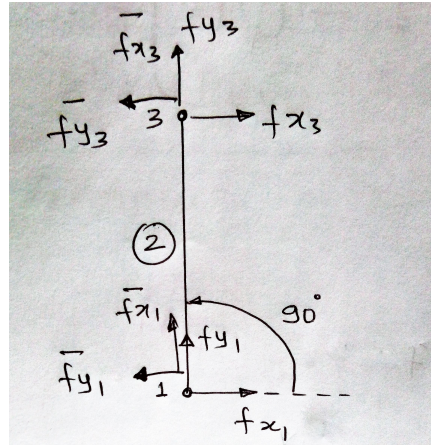 f̅x₃ fy₃
f̅y₃ 3 fx₃
②
f̅x₁ 90°
fy₁
f̅y₁ 1
fx₁